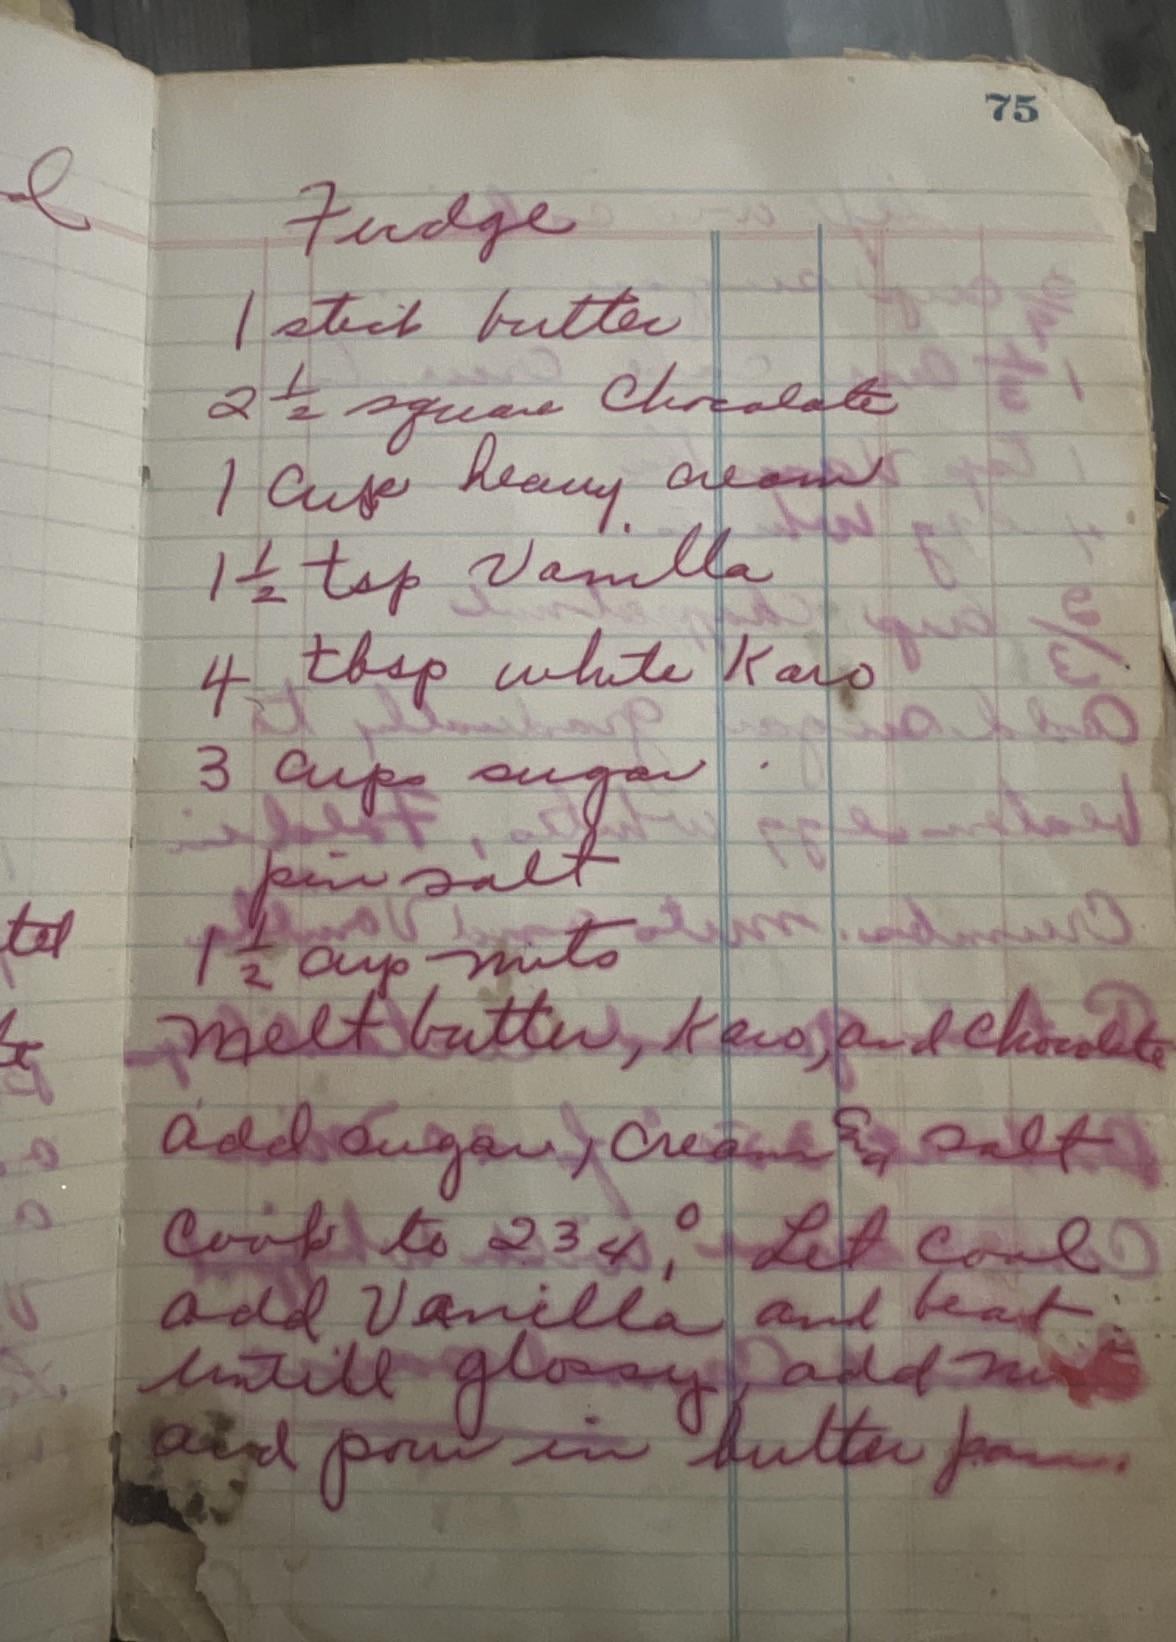 75
Fudge
1 stick butter
2 1/2 square Chocolate
1 Cup heavy cream
1 1/2 tsp Vanilla
4 tbsp white Karo
3 Cups sugar
pin salt
1 1/2 cup nuts
Melt butter, Karo, and chocolate
add sugar, cream & salt
Cook to 234°, Let cool
add Vanilla and beat
untill glossy, add
and pour in butter pan.